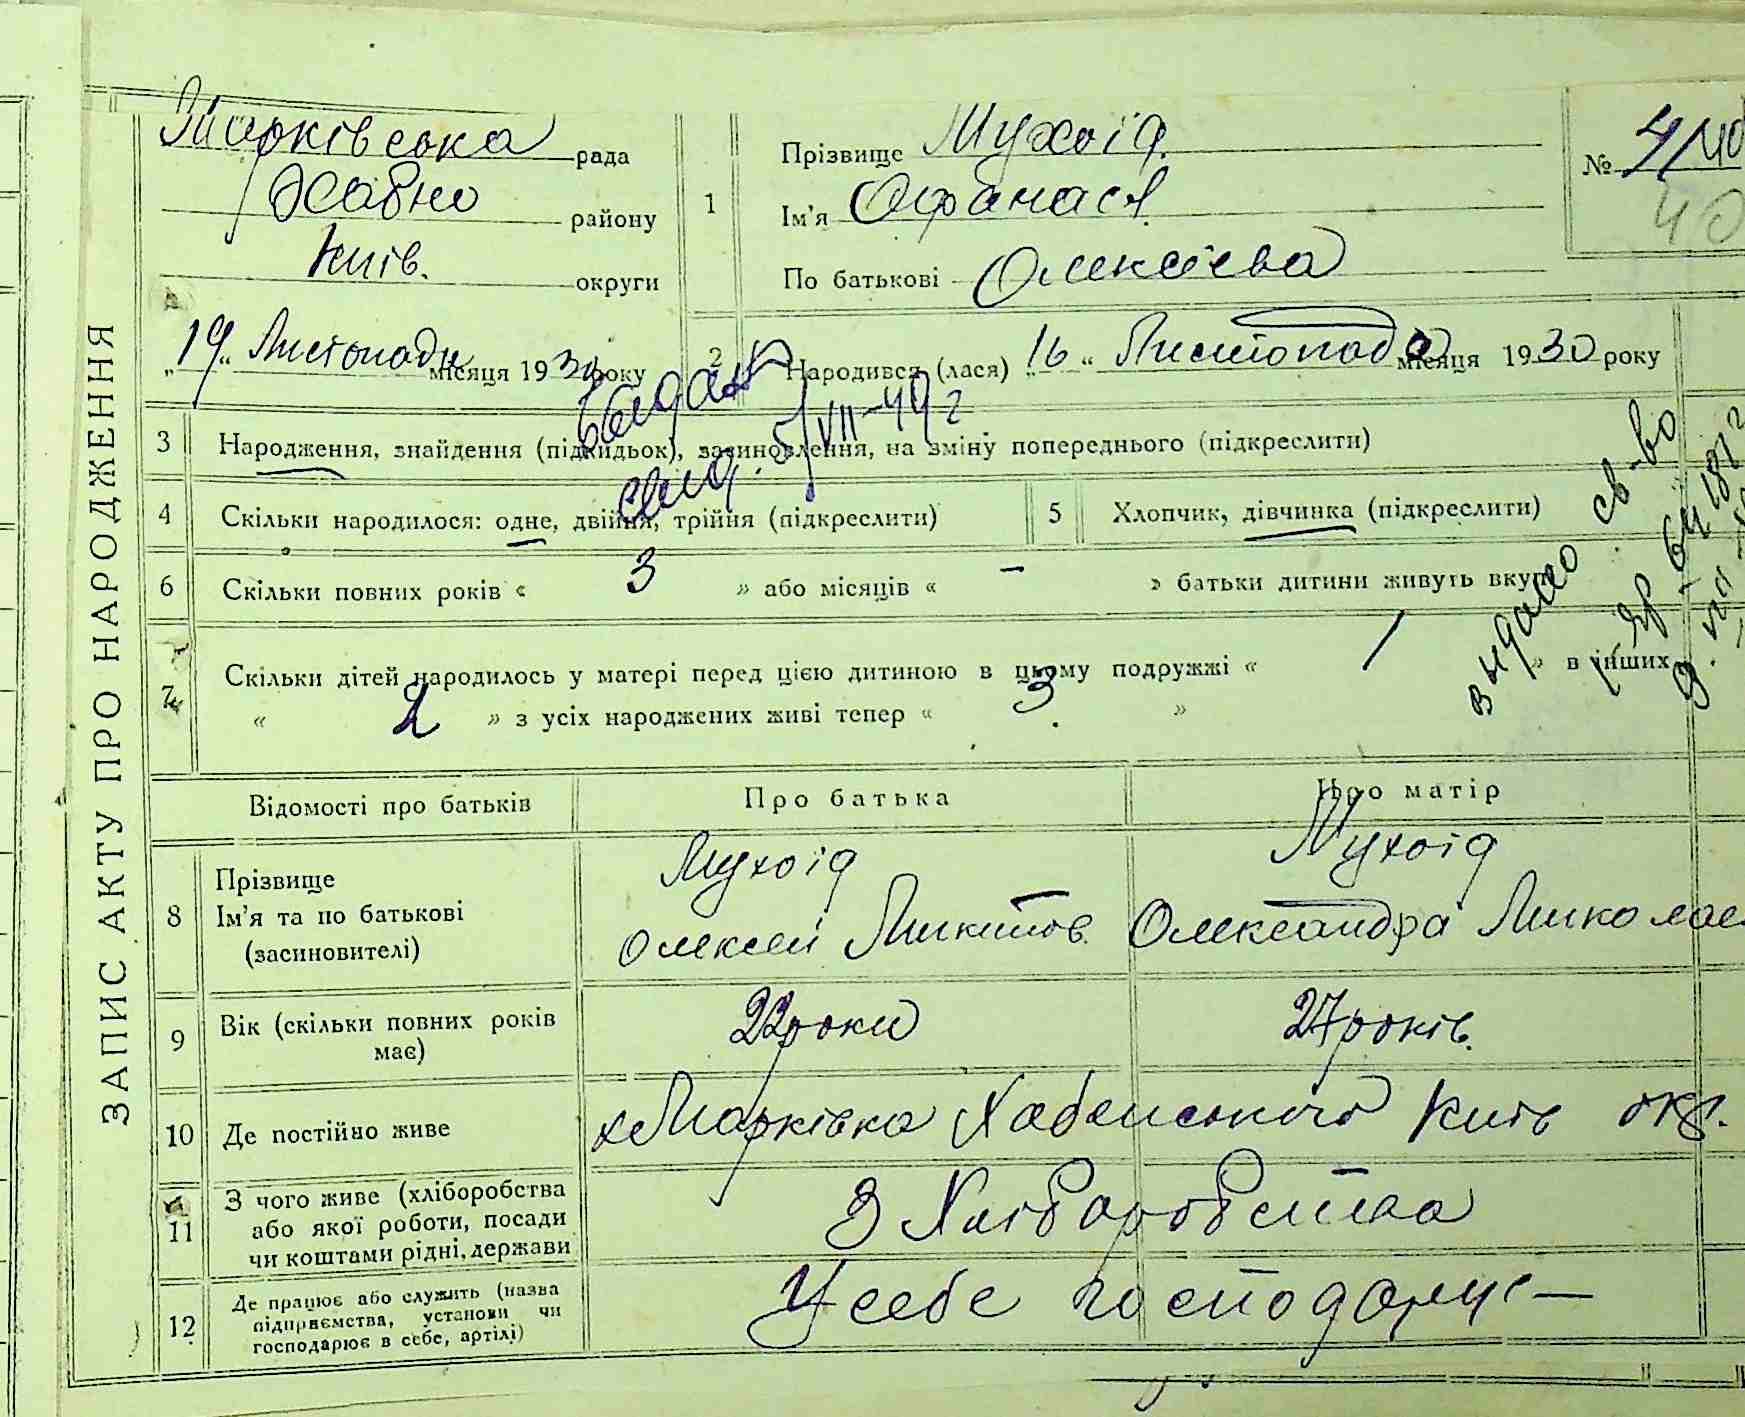 ЗАПИС АКТУ ПРО НАРОДЖЕННЯ
Марківська рада
Хабно району
Київ. округи
„19“ Листопада місяця 1930 року
1 Прізвище Мухоїд
Ім'я Афанасія
По батькові Олексієва
№ 4/40
40
2 Народився (лася) „16“ Листопада місяця 1930 року
3 Народження, знайдення (підкидьок), засиновлення, на зміну попереднього (підкреслити)
свид. 5/VII-49 г
4 Скільки народилося: одне, двійня, трійня (підкреслити)
5 Хлопчик, дівчинка (підкреслити)
6 Скільки повних років « 3 » або місяців « – » батьки дитини живуть вкупі
видано св-во
7 Скільки дітей народилось у матері перед цією дитиною в цьому подружжі « 1 » в інших
« 2 » з усіх народжених живі тепер « 3 »
Відомості про батьків Про батька Про матір
8 Прізвище
Ім'я та по батькові
(засиновителі)
Мухоїд
Олексій Микитов.
Мухоїд
Олександра Миколаев
9 Вік (скільки повних років
має)
22 роки
27 років.
10 Де постійно живе
х Марківка Хабенського Київ окр.
11 З чого живе (хліборобства
або якої роботи, посади
чи коштами рідні, держави
З Хліборобства
12 Де працює або служить (назва
підприємства, установи чи
господарює в себе, артілі)
У себе господарує –